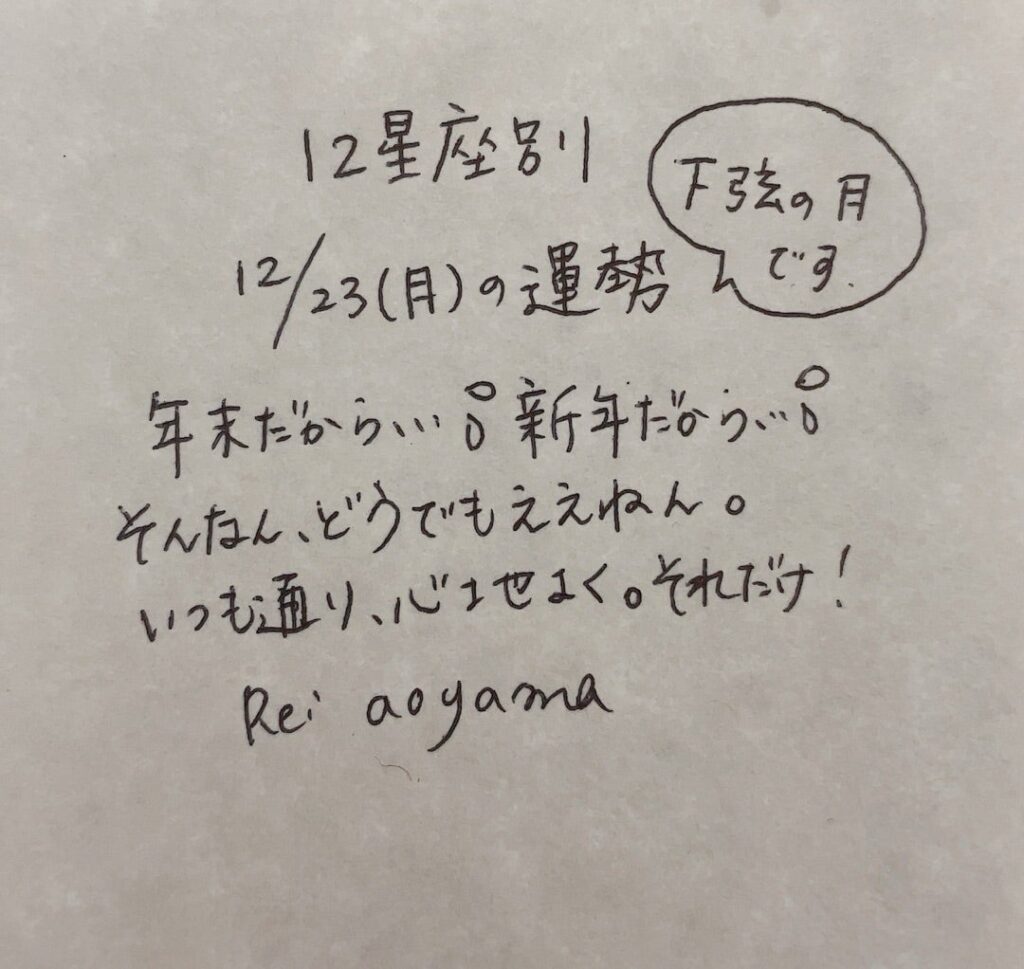 12星座別
12/23(月)の運勢
下弦の月
です.
年末だから…? 新年だから…?
そんなん、どうでもええねん。
いつも通り、心地よく。それだけ!
Rei aoyama